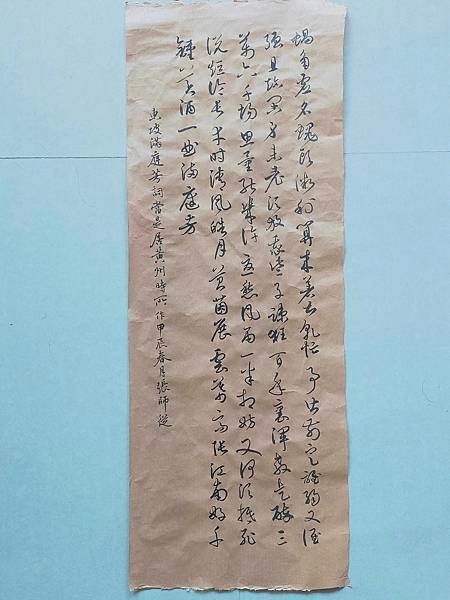 蝸角虚名蠅頭微利算来著甚乾忙事皆前定誰弱又誰
强且趁閑身未老須放我些子疎狂百年裏渾教是醉三
萬六千場思量能幾許憂愁風雨一半相妨又何須抵死
説短論長幸對清風皓月苔茵展雲幕高張江南好千
鍾美酒一曲滿庭芳
東坡滿庭芳詞當是居黄州時所作甲辰春月張師從